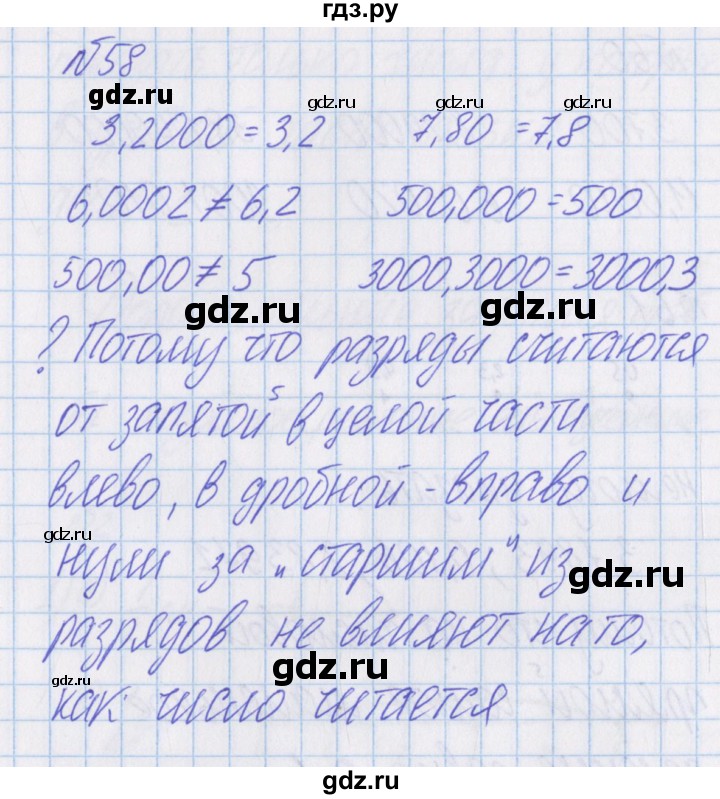 гдз.ру
№58
gdz.ru
gdz.ru gdz.ru gdz.ru
3,2000 = 3,2 7,80 = 7,8
6,0002 ≠ 6,2 500,000 = 500
500,00 ≠ 5 3000,3000 = 3000,3
gdz.ru gdz.ru
? Потому что разряды считаются
от запятой в целой части
влево, в дробной - вправо и
gdz.ru
нули за „старшим" из
gdz.ru
разрядов не влияют на то,
gdz.ru gdz.ru
как число читается
gdz.ru